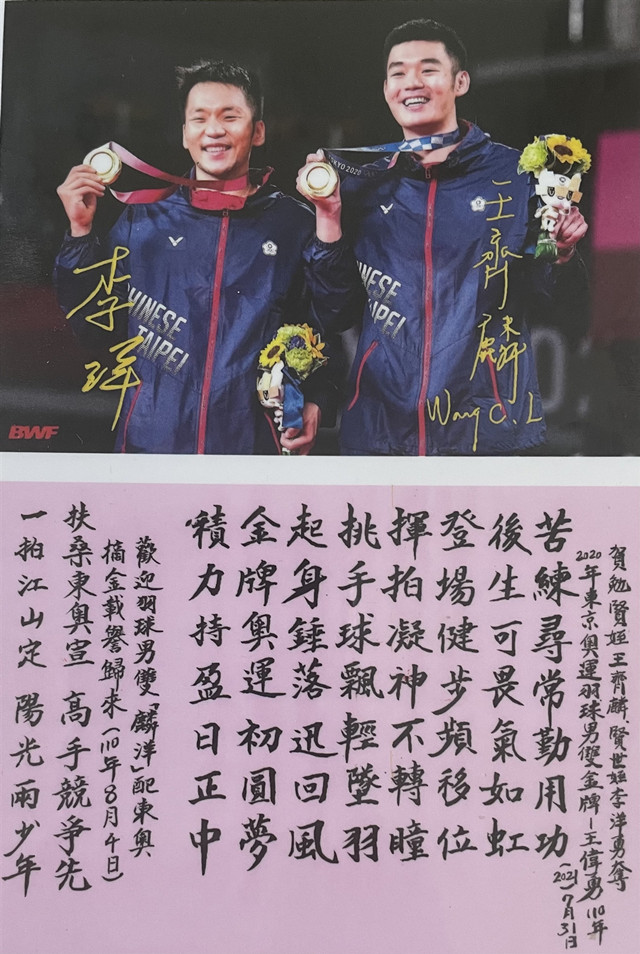 TOKYO 2020
CHINESE
TAIPEI
李洋
CHINESE
TAIPEI
王齊麟
Wang C. L
BWF
賀勉賢姪王齊麟、賢世姪李洋勇奪
2020年東京奧運羽球男雙金牌－王偉勇110年
(2021)7月31日
苦練尋常勤用功
後生可畏氣如虹
登場健步頻移位
揮拍凝神不轉瞳
挑手球飄輕墜羽
起身錘落迅回風
金牌奧運初圓夢
積力持盈日正中
歡迎羽球男雙「麟洋」配東奧
摘金載譽歸來(110年8月4日)
扶桑東奧宣 高手競爭先
一拍江山定 陽光兩少年